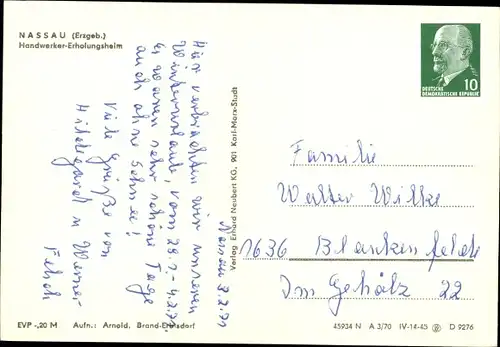 NASSAU (Erzgeb.)
Handwerker-Erholungsheim
Nassau 3.2.71
Hier verbrachten wir unseren
Winterurlaub, vom 28.1.-4.2.71.
Es waren sehr schöne Tage
auch ohne Schnee!
Viele Grüße von
Hildegard u Werner
DEUTSCHE
DEMOKRATISCHE REPUBLIK
10
Familie
Walter Wilke
1636 Blankenfelde
Im Gehölz 22
Verlag Erhard Neubert KG, 901 Karl-Marx-Stadt
EVP -,20 M Aufn.: Arnold, Brand-Erbisdorf
45934 N A 3/70 IV-14-45 D 9276